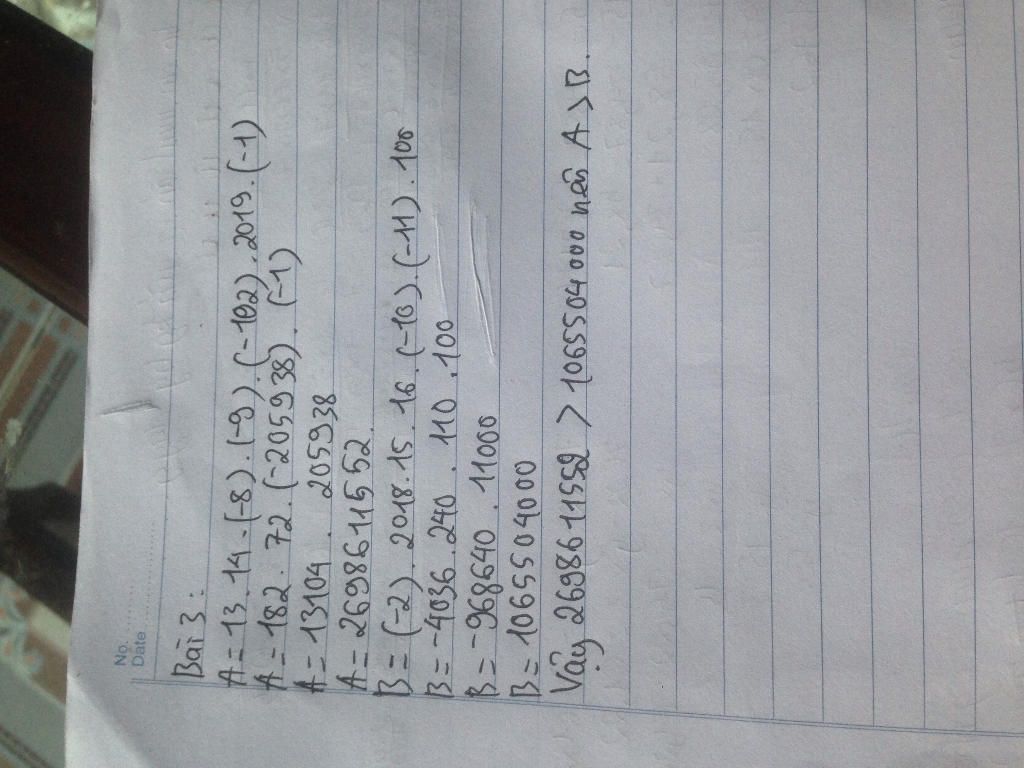 No.
Date
Bài 3:
A = 13 . 14 . (-8) . (-9) . (-102) . 2019 . (-1)
A = 182 . 72 . (-205938) . (-1)
A = 13104 . 205938
A = 2698611552.
B = (-2) . 2018 . 15 . 16 . (-10) . (-11) . 100
B = -4036 . 240 . 110 . 100
B = -968640 . 11000
B = 10655040000
Vậy 2698611552 > 1065504000 nên A > B.